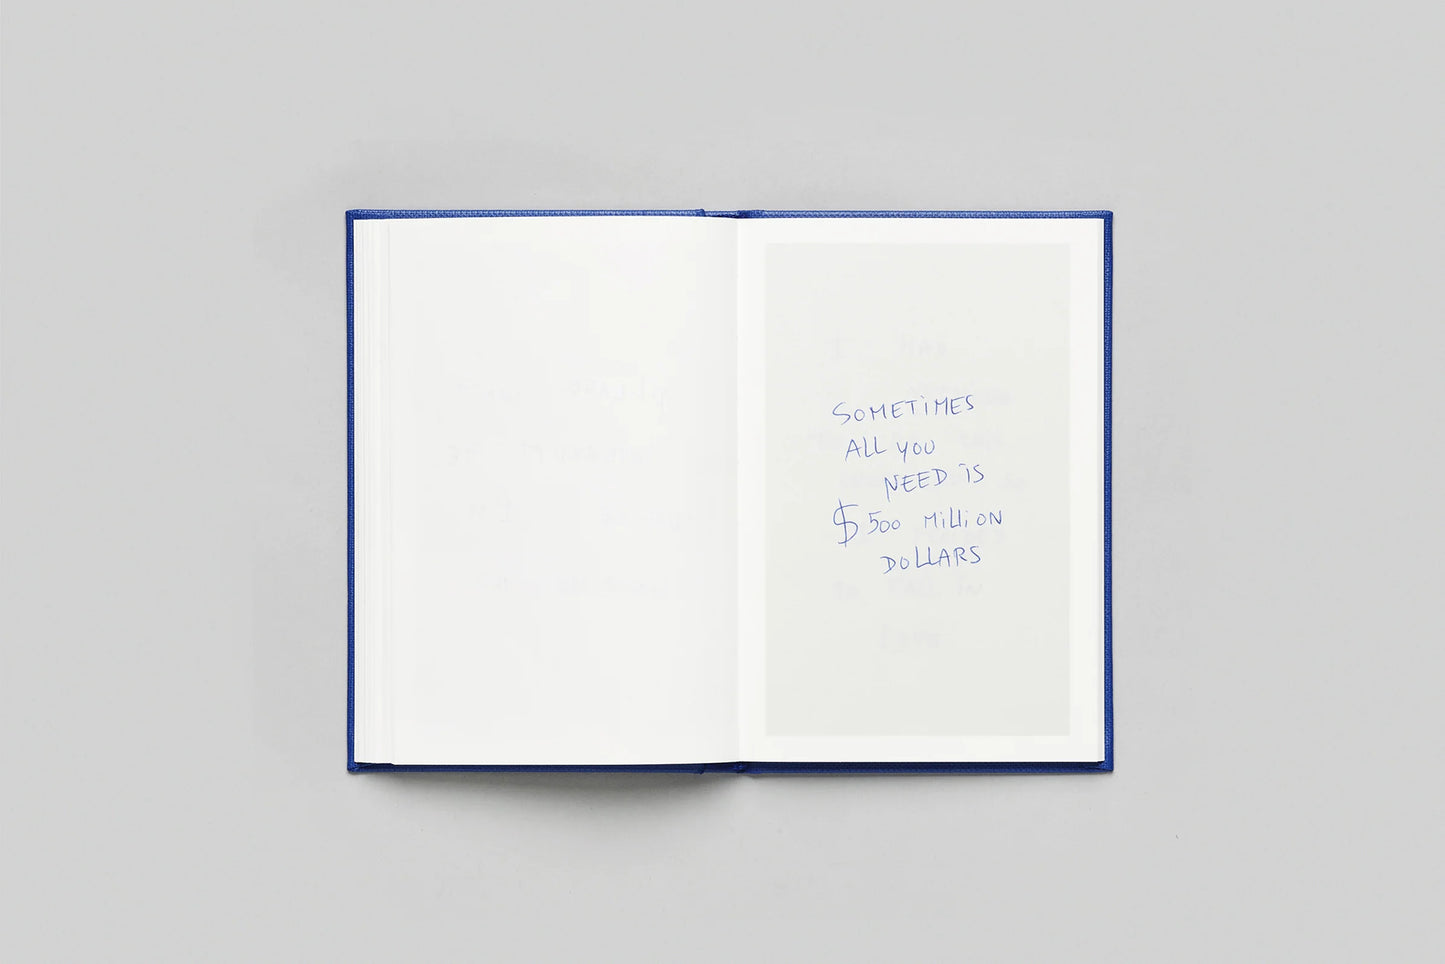 SOMETiMES
ALL YOU
NEED iS
$500 MiLLiON
DOLLARS